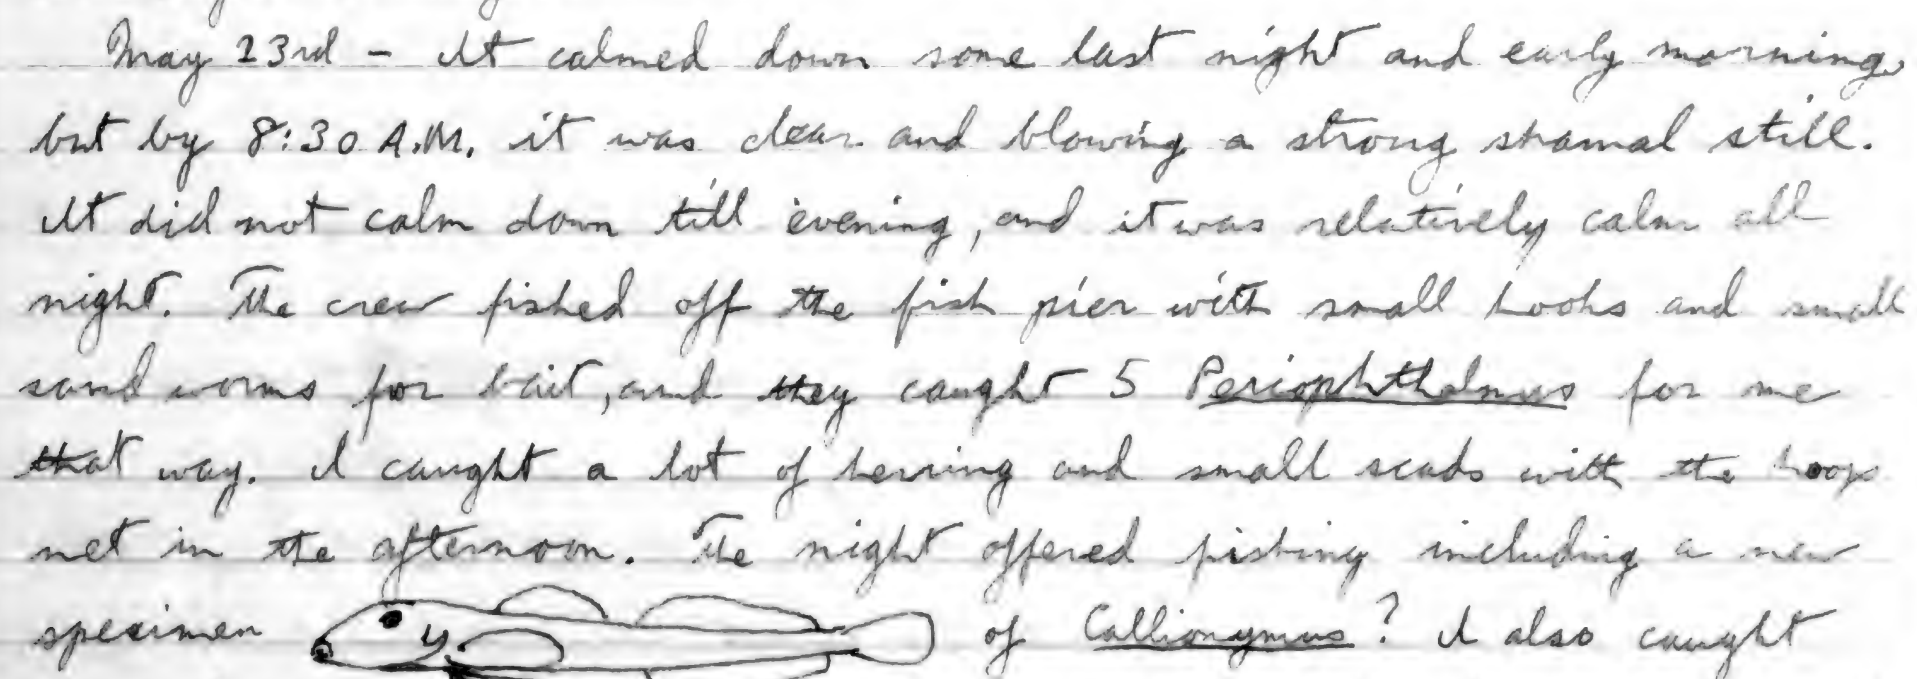 May 23rd - It calmed down some last night and early morning,
but by 8:30 A.M. it was clear and blowing a strong shamal still.
It did not calm down till evening, and it was relatively calm all
night. The crew fished off the fish pier with small hooks and small
sand worms for bait, and they caught 5 Periophthalmus for me
that way. I caught a lot of herring and small scads with the hoop
net in the afternoon. The night offered fishing including a new
specimen of Callionymus? I also caught